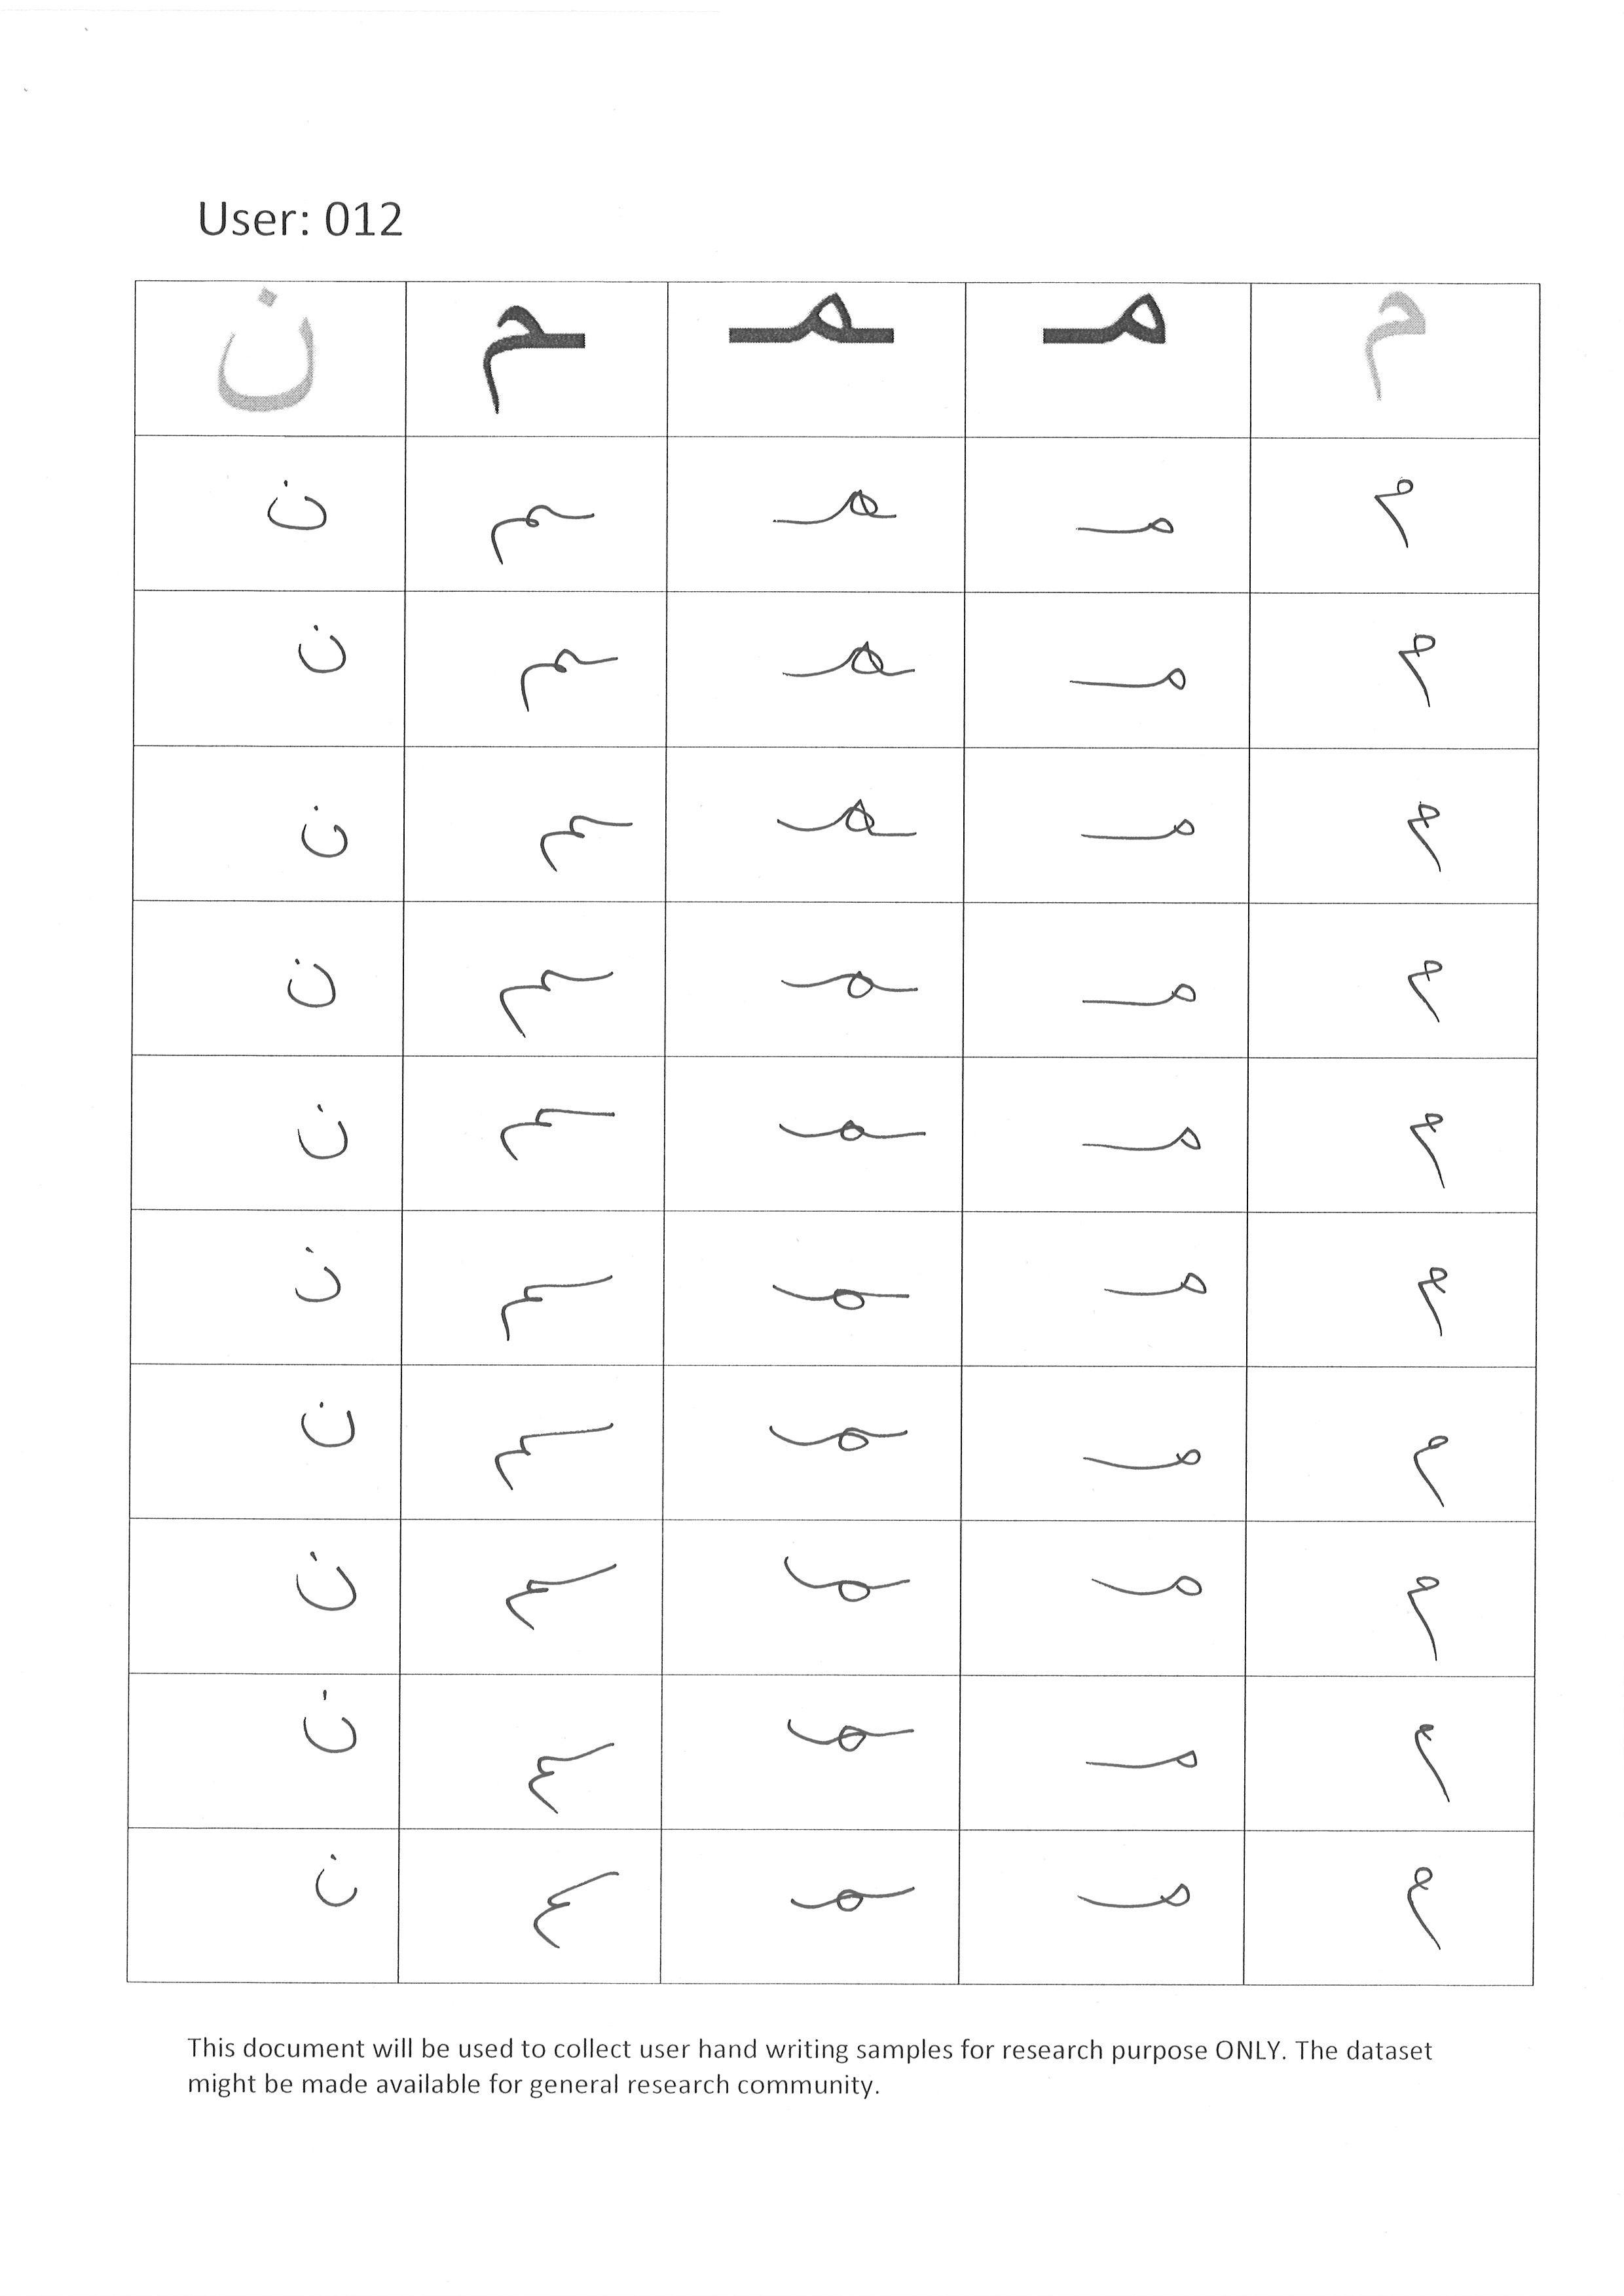 User: 012
م مـ ـمـ ـم ن
م مـ ـمـ ـم ن
م مـ ـمـ ـم ن
م مـ ـمـ ـم ن
م مـ ـمـ ـم ن
م مـ ـمـ ـم ن
م مـ ـمـ ـم ن
م مـ ـمـ ـم ن
م مـ ـمـ ـم ن
م مـ ـمـ ـم ن
م مـ ـمـ ـم ن
This document will be used to collect user hand writing samples for research purpose ONLY. The dataset
might be made available for general research community.